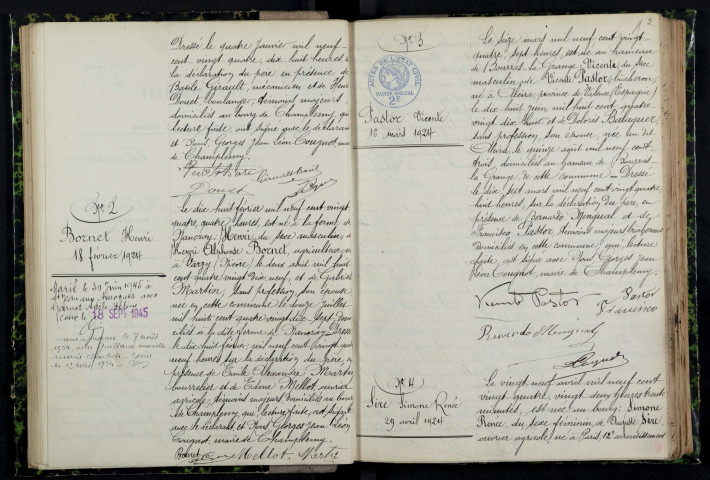 Dressé le quatre janvier mil neuf
cent vingt quatre, dix huit heures, sur
la déclaration du père, en présence de
Basile Girault, mécanicien et de Henri
Douet, boulanger, témoins majeurs
domiciliés au bourg de Champlemy, qui
lecture faite, ont signé avec le déclarant
et Nous, Georges Jean Léon Cougnot, maire
de Champlemy.
Douet
N° 2
Bornet Henri
18 février 1924
Marié le 30 juin 1945 à
18 SEPT 1945
Le dix huit février mil neuf cent vingt
quatre, quatre heures, est né à la ferme de
Nancray: Henri, du sexe masculin, de
Henri Alphonse Bornet, agriculteur, né
à Varzy (Nièvre) le deux avril mil huit
cent quatre vingt dix neuf, et de Gabrielle
Martin, sans profession, son épouse
née en cette commune le douze juillet
mil huit cent quatre vingt dix sept, domi-
ciliés à la dite ferme de Nancray. Dressé
le dix huit février, mil neuf cent vingt quatre
neuf heures sur la déclaration du père, en
présence de Emile Alexandre Martin
bourrelier et de Edme Mellot, ouvrier
agricole, témoins majeurs domiciliés au bourg
de Champlemy, qui, lecture faite, ont signé
avec le déclarant et Nous Georges Jean Léon
Cougnot, maire de Champlemy.
Bornet Mellot Martin
2
N° 3
ACTES DE L'ETAT CIVIL
PAPIER SPECIAL
2F
Pastor Vicente
16 mars 1924
Le seize mars mil neuf cent vingt-
quatre, sept heures, est né au hameau
de Bourras-la-Grange, Vicente, du sexe
masculin, de Vicente Pastor, bûcheron,
né à Oliva, province de Valence (Espagne)
le dix huit juin mil huit cent quatre
vingt dix huit et de Dolorès Balaguer
sans profession, son épouse, née au dit
Oliva, le quinze août mil neuf cent
trois, domiciliés au hameau de Bourras-
la-Grange, de cette commune. Dressé
le dix sept mars mil neuf cent vingt quatre,
huit heures, sur la déclaration du père, en
présence de Bernardo Mengual et de
Francisco Pastor, témoins majeurs bûcherons
domiciliés en cette commune, qui, lecture
faite, ont signé avec Nous Georges Jean
Léon Cougnot, maire de Champlemy.
Vicente Pastor
Pastor
Francisco
Bernardo Mengual
N° 4
Sère Simone Renée
29 avril 1924
Le vingt neuf avril mil neuf cent
vingt quatre, vingt deux heures trente
minutes, est née au bourg: Simone
Renée, du sexe féminin, de Auguste Sère,
ouvrier agricole, né à Paris, 12e arrondissement